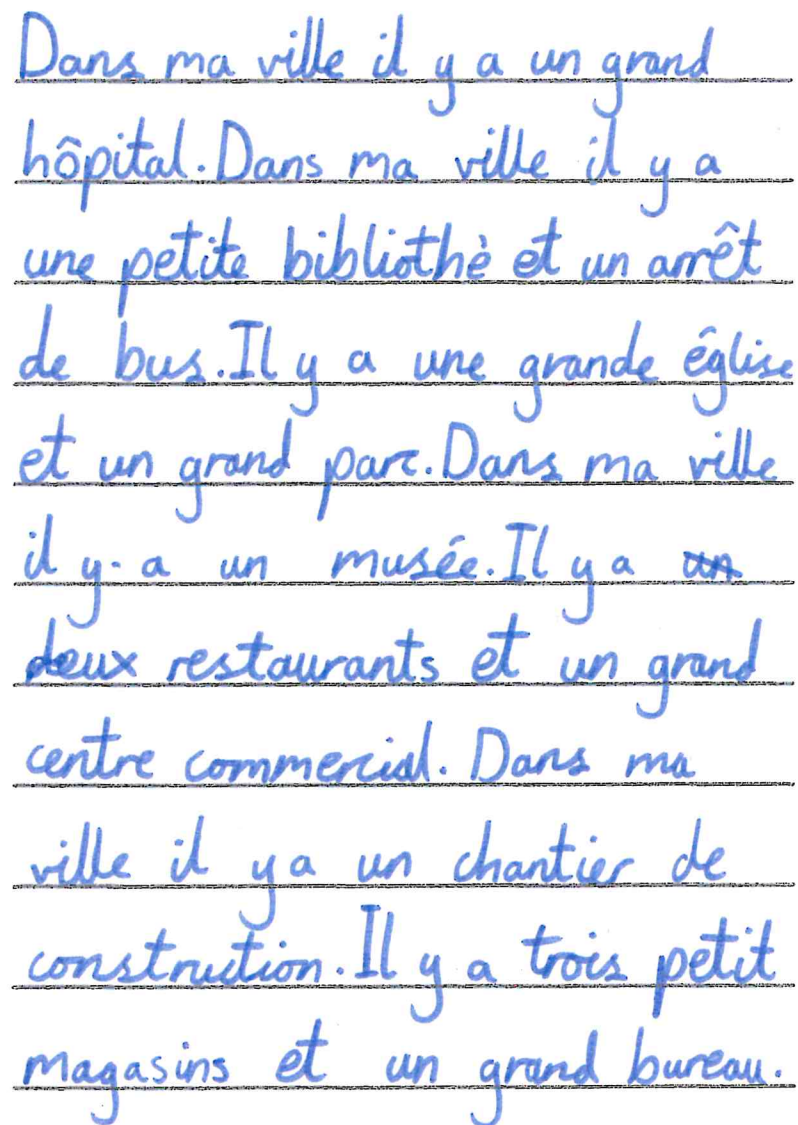 Dans ma ville il y a un grand
hôpital. Dans ma ville il y a
une petite bibliothè et un arrêt
de bus. Il y a une grande église
et un grand parc. Dans ma ville
il y. a un musée. Il y a un
deux restaurants et un grand
centre commercial. Dans ma
ville il y a un chantier de
construction. Il y a trois petit
magasins et un grand bureau.